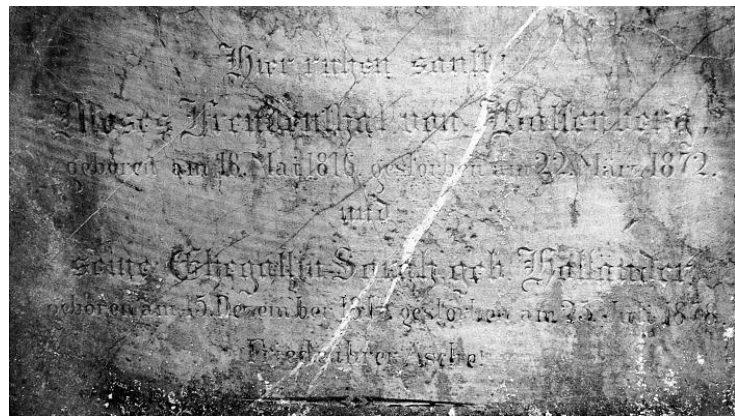 Hier ruhen sanft:
Moses Freudenthal von Wallenberg,
geboren am 18. Mai 1816, gestorben am 22. März 1872.
und
seine Ehegattin Sarah geb. Holländer
geboren am 15. Dezember gestorben am
Friede ihrer Asche!